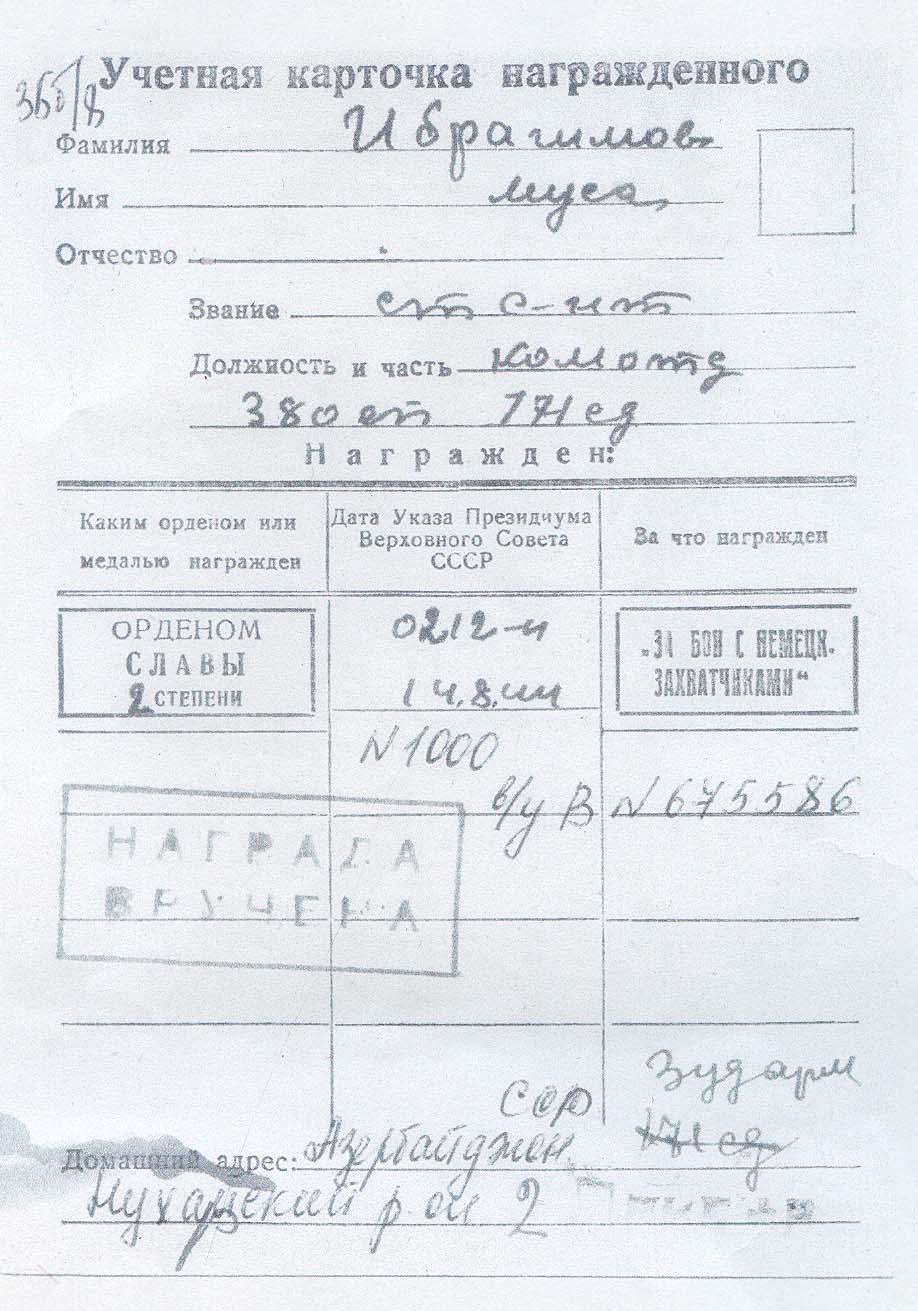 Учетная карточка награжденного
Фамилия Ибрагимов
Имя Муса
Отчество
Звание ст с-нт
Должность и часть ком отд
380 сп 171 сд
Награжден:
Каким орденом или медалью награжден
Дата Указа Президиума Верховного Совета СССР
За что награжден
ОРДЕНОМ
СЛАВЫ
2 СТЕПЕНИ
0212-н
14.8.44
„ЗА БОИ С НЕМЕЦК.
ЗАХВАТЧИКАМИ“
N 1000
в/у В N 675586
НАГРАДА
ВРУЧЕНА
3 уд арм
ССР
171 сд
Домашний адрес: Азербайджан
Нухинский р-он 2